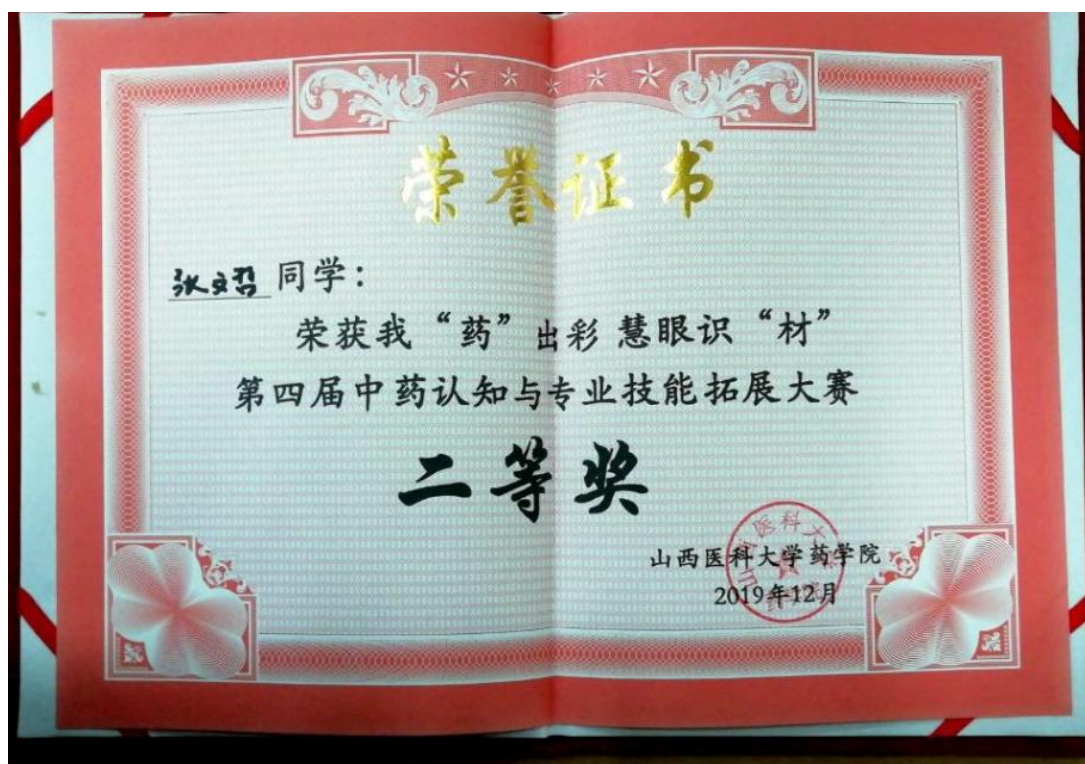 荣誉证书
张文君 同学：
荣获我“药”出彩 慧眼识“材”
第四届中药认知与专业技能拓展大赛
二等奖
山西医科大学药学院
2019年12月